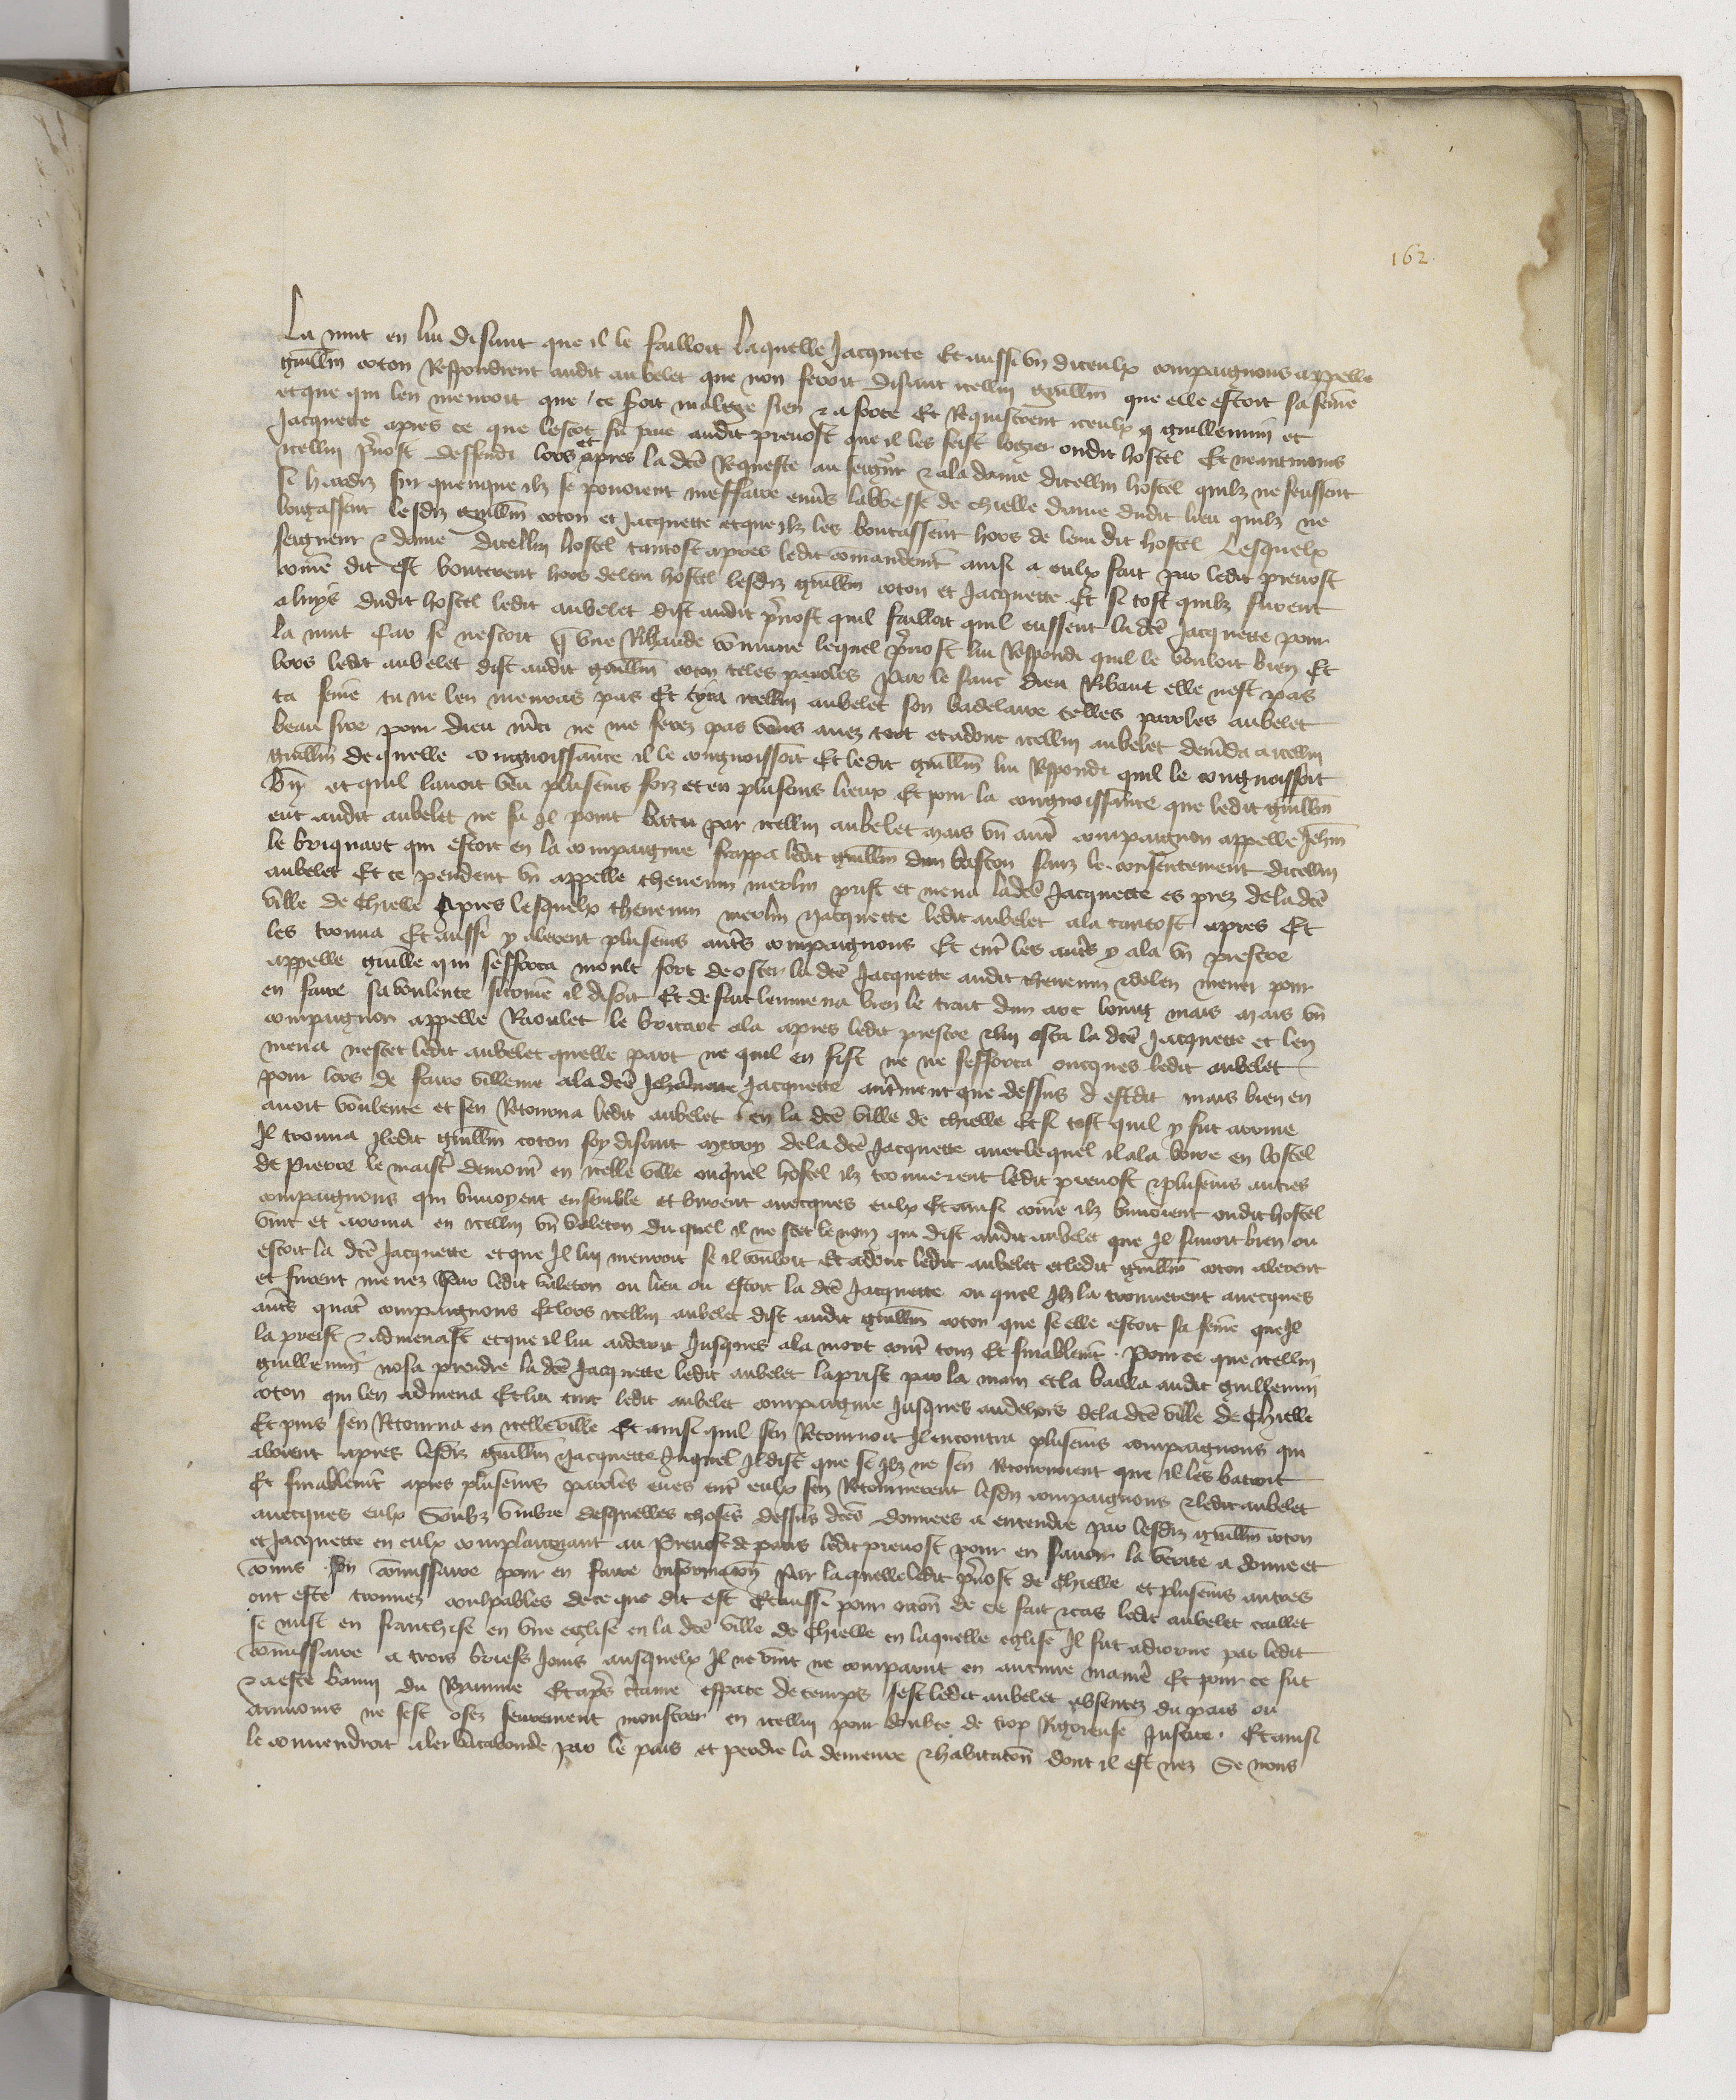 162.
La nuit en lui disant que il le failloit laquelle Jacquete Et aussi vn diceulx compaignons appelle
guillm̄ coton Respondirent audit aubelet que non feroit disant icellui guillm̄ que elle estoit sa fem̄e
et que qui len menroit que ce seroit maltgre sien ⁊ a force Et Requistrent iceulx guillemin et
Jacquette apres ce que lescot fu paie audit preuost que il les feist logier oudit hostel Et neantmoins
icellui p̄uost deffendi lors et apres la dcē Requeste au seignr̄ ⁊ ala dame dicellui hostel quilz ne feussent
si hardiz sur quenque ilz se pouoient meffaire enūs labbesse de chielle dame dudit lieu quilz ne
lougassent lesdiz guillm̄ coton et Jacquette et que ilz les boutassent hors de leur dit hostel Lesquelx
seigneur ⁊ dame dicellui hostel tantost apres ledit comandemt̄ ainsi a eulx fait par ledit preuost
com̄e dit est bouterent hors de leur hostel lesdiz guillm̄ coton et Jacquette Et si tost quilz furent
a luys dudit hostel ledit aubelet dist audit p̄uost quil failloit quil eussent la dcē Jacquette pour
la nuit Car se nestoit q̄ vne Ribaude com̄une lequel p̄uost lui Respondi quil le vouloit bien Et
lors ledit aubelet dist audit guillm̄ coton teles paroles Par le sanc dieu Ribaut elle nest pas
ta fem̄e tu ne len menras pas Et tyra icellui aubelet son badelaire telles paroles aubelet
beau sire pour dieu m̄ci ne me ferez pas vous auez tort et adonc icellui aubelet dem̄da a icellui
guillm̄ de quelle congnoissance il le congnoissoit Et ledit guillm̄ lui Respondi quil le congnoissoit
bn̄ et quil lauoit veu plusieurs foiz et en plusieurs lieux Et pour la congnoissance que ledit guillm̄
eut audit aubelet ne fu Il point batu par icellui aubelet mais vn aut̄ compaignon appelle Jehn̄
le briquart qui estoit en la compaignie frappa ledit guillm̄ dun baston sanz le consentement dicellui
aubelet Et ce pendent vn appelle theuenin merlin prist et mena ladcē Jacquette es prez dela dcē
ville de Chielle Apres lesquelx theuenin merlin ⁊ Jacquette ledit aubelet ala tantost apres Et
les trouua Et aussi y alerent plusieurs aut̄s compaignons Et ent̄ les aut̄s y ala vn prestre
appelle guille qui sefforca moult fort de oster la dcē Jacquette audit theuenin ⁊ delen mener pour
en faire sa voulente si com̄e il disoit Et de fait lenmena bien le trait dun arc loing mais mais vn
compaignon appelle Raoulet le bricart ala apres ledit prestre ⁊ lui osta la dcē Jacquette et len
mena nescet ledit aubelet quelle part ne quil en fist ne ne sefforca oncques ledit aubelet
pour lors de faire villenie ala dcē Jehannette Jacquette aut̄ment que dessus d est dit mais bien en
auoit voulente et sen Retourna ledit aubelet en la dcē ville de chielle Et si tost quil y fut arriue
Il trouua ledit guillm̄ coton soy disant mary dela dcē Jacquette auec lequel il ala boire en lostel
de Pierre le maist̄ demour̄ en icelle ville ouquel hostel ilz trouuerent ledit preuost ⁊ plusieurs autres
compaignons qui buuoyent ensemble et burent auecques eulx Et ainsi com̄e ilz buuoient oudit hostel
vint et arriua en icellui vn valeton duquel il ne scet le nom qui dist audit aubelet que Il sauoit bien ou
estoit la dcē Jacquette et que Il lui menroit se il vouloit Et adonc ledit aubelet et ledit guillm̄ coton alerent
et furent menez par ledit valeton ou lieu ou estoit la dcē Jacquette ou quel Ilz la trouuerent auecques
aut̄s quat̄ compaignons Et lors icellui aubelet dist audit guillm̄ coton que se elle estoit sa fem̄e que Il
la preist ⁊ admenast et que il lui aideroit Jusques ala mort cont̄ touz Et finablemt̄ . Pource que icellui
guillemin nosa prendre la dcē Jacquette ledit aubelet la prist par la main et la bailla audit guillemin
coton qui len admena Et lui tint ledit aubelet compaignie Jusques audehors dela dcē ville de Chielle
Et puis sen Retourna en icelle ville Et ainsi quil sen Retournoit Il encontra plusieurs compaignons qui
aloient apres lesdiz guillm̄ ⁊ Jacquette Ausquel Il dist que se Ilz ne sen Retournoient que il les batroit
Et finablemt̄ apres plusieurs paroles eues ent̄ eulx sen Retournerent lesdiz compaignons ⁊ ledit aubelet
auecques eulx Soubz vmbre desquelles choses dessus dcēs donnees a entendre par lesdiz guillm̄ coton
et Jacquette en eulx complaingnant au Preuost de paris ledit preuost pour en sauoir la verite a donne et
com̄is vn com̄issaire pour en faire Informacōn Par laquelle ledit p̄uost de Chielle et plusieurs autres
ont este trouuez coulpables de ce que dit est Et aussi pour occōn de ce fait ⁊ cas ledit aubelet caillet
se mist en franchise en vne eglise en la dcē ville de Chielle en laquelle eglise Il fut adiorne par ledit
com̄issaire a trois briefs Jours ausquelx Il ne vint ne comparut en aucune manie Et pour ce fut
⁊ a este banny du Royaume Et apr̄s c̄taine espace de temps sest ledit aubelet absentez du pais ou
aumoins ne sest osez seurement monstrer en icellui pour doubte de trop Rigoreuse Justice . Et ainsi
le conuendroit aler vacabonde par le pais et perdre la demeure ⁊ habitacōn dont il est nez Se nous